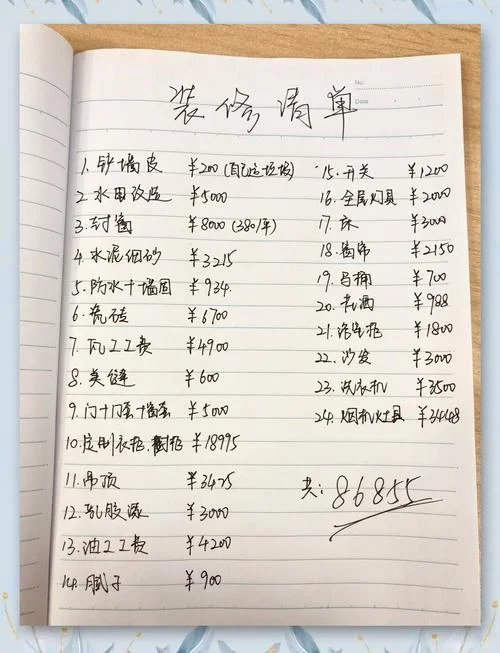 No:
Date
装修清单
1. 铲墙皮 ¥200 (自己运垃圾)
2. 水电改造 ¥5000
3. 封窗 ¥8000 (380/平)
4. 水泥细砂 ¥3215
5. 防水+墙固 ¥934
6. 瓷砖 ¥6700
7. 瓦工工费 ¥4900
8. 美缝 ¥600
9. 门+门套+窗套 ¥5000
10. 定制衣柜、橱柜 ¥18995
11. 吊顶 ¥3425
12. 乳胶漆 ¥3000
13. 油工工费 ¥4200
14. 腻子 ¥900
15. 开关 ¥1200
16. 全屋灯具 ¥2000
17. 床 ¥3000
18. 窗帘 ¥2150
19. 马桶 ¥700
20. 花洒 ¥988
21. 浴室柜 ¥1800
22. 沙发 ¥3000
23. 洗衣机 ¥3500
24. 烟机灶具 ¥3448
共: 86855